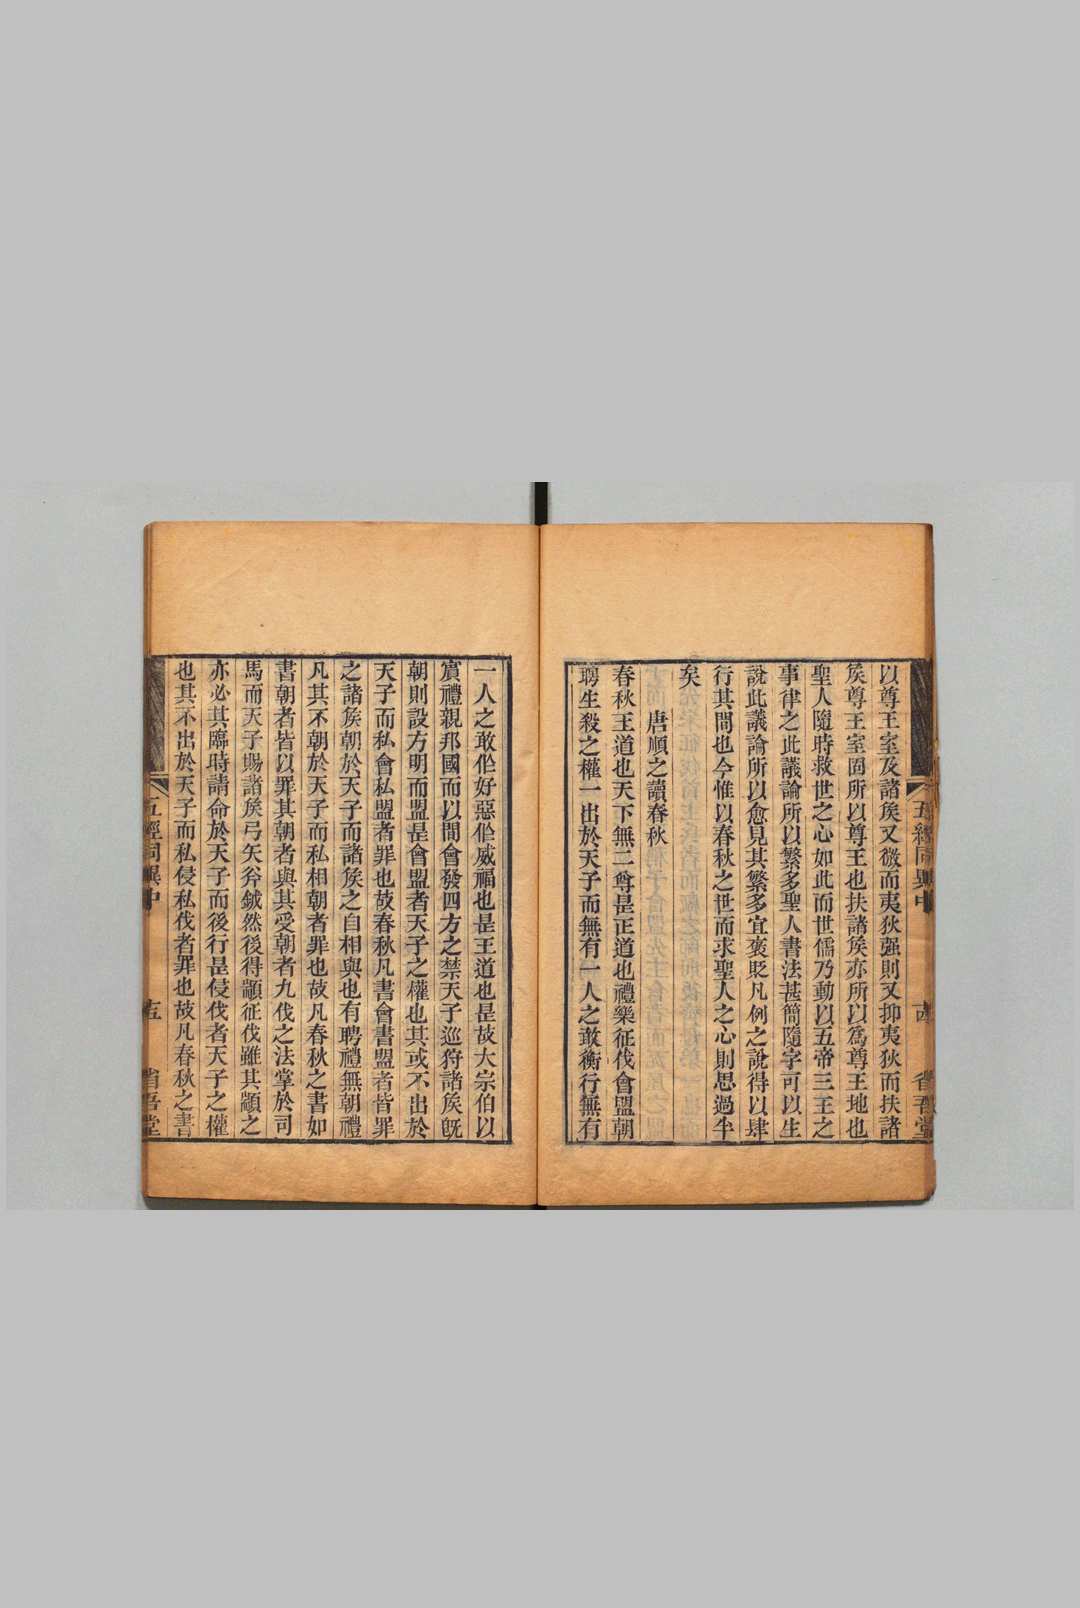 以尊王室及諸矦又微而夷狄强則又抑夷狄而扶諸
矦尊王室固所以尊王也扶諸矦亦所以為尊王地也
聖人隨時救世之心如此而世儒乃動以五帝三王之
事律之此議論所以繁多聖人書法甚簡隨字可以生
說此議論所以愈見其繁多宜褒貶凡例之說得以肆
行其間也今惟以春秋之世而求聖人之心則思過半
矣
唐順之讀春秋
春秋王道也天下無二尊是正道也禮樂征伐會盟朝
聘生殺之權一出於天子而無有一人之敢衡行無有
五經同異中
十四
省吾堂
一人之敢作好惡作威福也是王道也是故大宗伯以
賓禮親邦國而以間會發四方之禁天子巡狩諸矦旣
朝則設方明而盟是會盟者天子之權也其或不出於
天子而私會私盟者罪也故春秋凡書會書盟者皆罪
之諸矦朝於天子而諸矦之自相與也有聘禮無朝禮
凡其不朝於天子而私相朝者罪也故凡春秋之書如
書朝者皆以罪其朝者與其受朝者九伐之法掌於司
馬而天子賜諸矦弓矢斧鉞然後得顓征伐雖其顓之
亦必其臨時請命於天子而後行是侵伐者天子之權
也其不出於天子而私侵私伐者罪也故凡春秋之書
五經同異中
十五
省吾堂